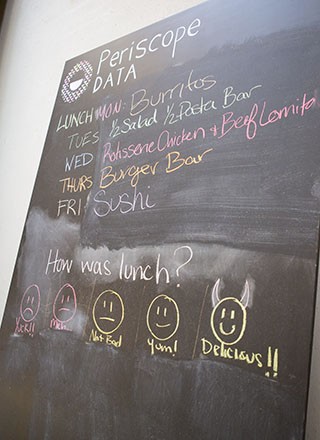 Periscope
DATA
LUNCH MON: Burritos
TUES ½ Salad ½ Pasta Bar
WED Rotisserie Chicken + Beef Lomito
THURS Burger Bar
FRI Sushi
How was lunch?
Yuck!! Meh Not Bad Yum! Delicious!!